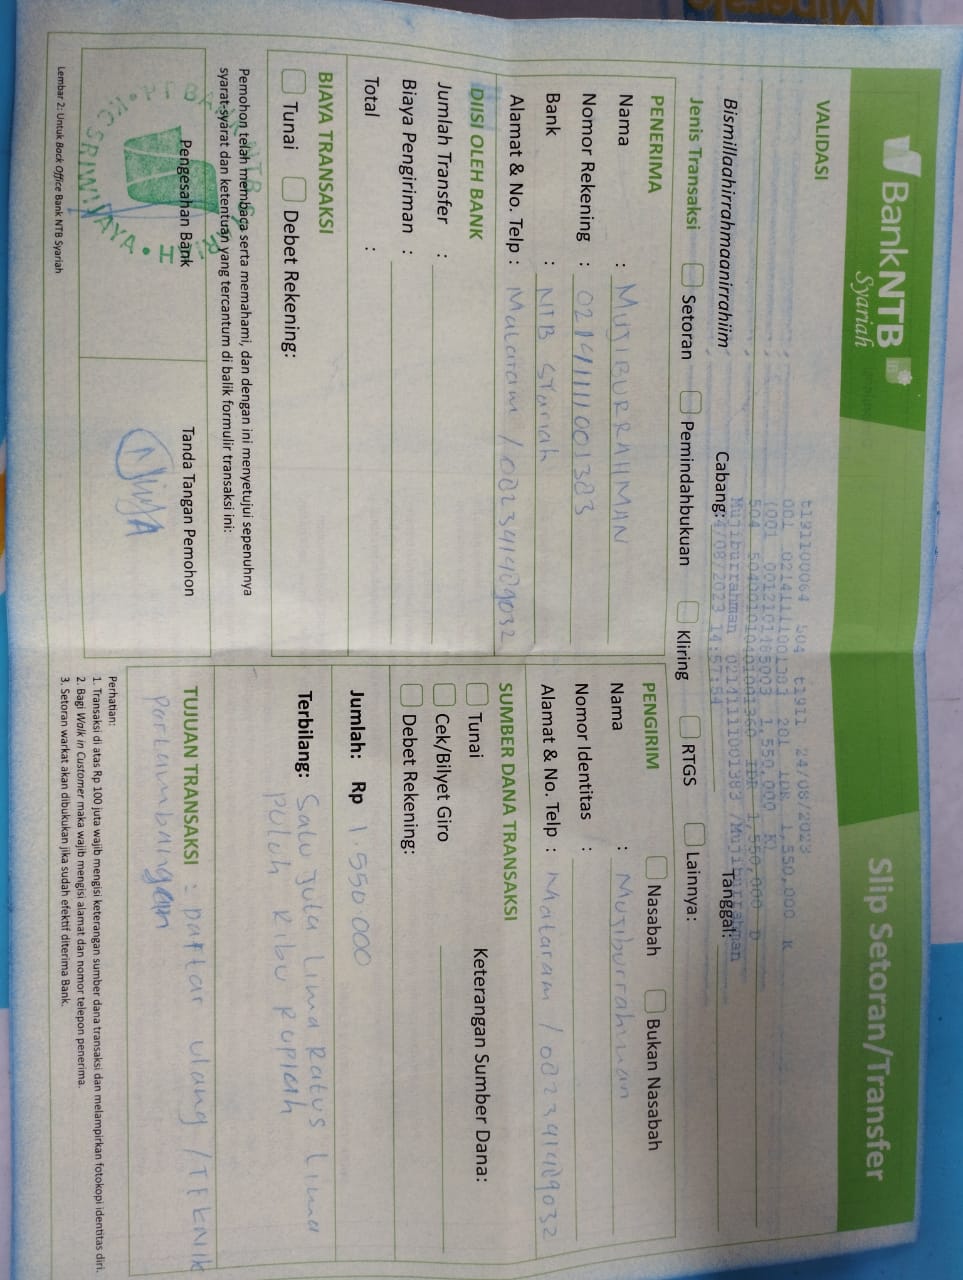 Minerale
BankNTB
Syariah
Slip Setoran/Transfer
VALIDASI
t191100064 504 t1911 24/08/2023
001 0214111001383 201 IDR 1,550,000 K
1,550,000
504 IDR 1,550,000 D
Mujiburrahman 0214111001383 /Mujiburrahman
4/08/2023 14:57:54
Bismillaahirrahmaanirrahiim
Cabang:
Tanggal:
Jenis Transaksi
Setoran
Pemindahbukuan
Kliring
RTGS
Lainnya:
PENERIMA
Nama : MUJIBURRAHMAN
Nomor Rekening : 0214111001383
Bank : NTB Syariah
Alamat & No. Telp : Mataram /
PENGIRIM
Nasabah
Bukan Nasabah
Nama : Mujiburrahman
Nomor Identitas :
Alamat & No. Telp : Mataram /
DIISI OLEH BANK
Jumlah Transfer :
Biaya Pengiriman :
Total :
SUMBER DANA TRANSAKSI
Tunai
Cek/Bilyet Giro
Debet Rekening:
Keterangan Sumber Dana:
BIAYA TRANSAKSI
Tunai
Debet Rekening:
Jumlah: Rp 1.550 000
Terbilang: Satu juta Lima Ratus Lima
puluh Ribu Rupiah
Pemohon telah membaca serta memahami, dan dengan ini menyetujui sepenuhnya
syarat-syarat dan ketentuan yang tercantum di balik formulir transaksi ini:
Pengesahan Bank
Tanda Tangan Pemohon
SRIWIJAYA
TUJUAN TRANSAKSI : Daftar ulang / TEKNIK
Pertambangan
Perhatian:
1. Transaksi di atas Rp 100 juta wajib mengisi keterangan sumber dana transaksi dan melampirkan fotokopi identitas diri.
2. Bagi Walk in Customer maka wajib mengisi alamat dan nomor telepon penerima.
3. Setoran warkat akan dibukukan jika sudah efektif diterima Bank.
Lembar 2: Untuk Back Office Bank NTB Syariah